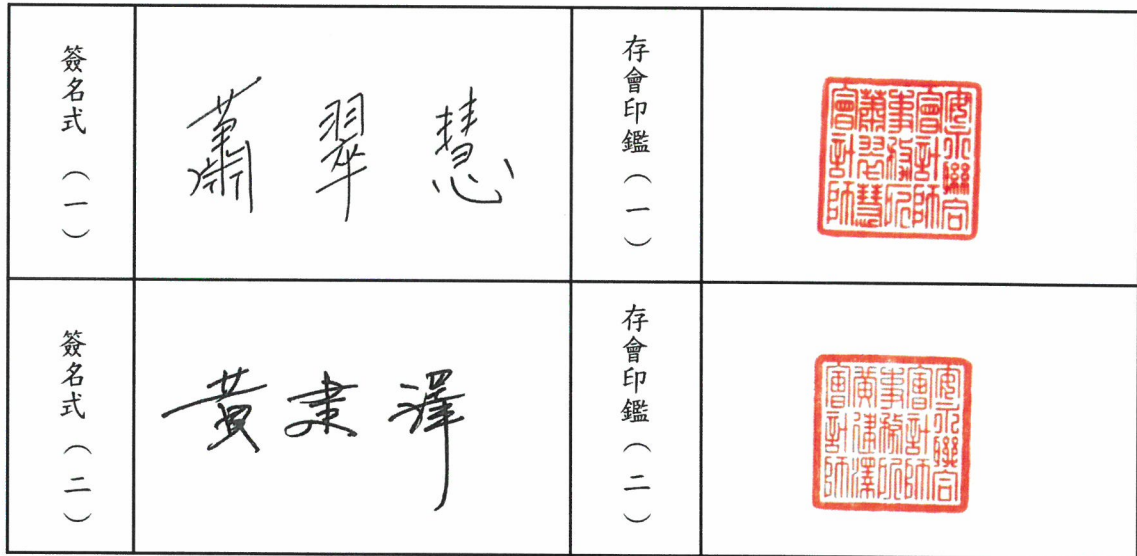 簽名式（一）
蕭翠慧
存會印鑑（一）
安永聯合
會計師
事務所
蕭翠慧
會計師
簽名式（二）
黃建澤
存會印鑑（二）
安永聯合
會計師
事務所
黃建澤
會計師